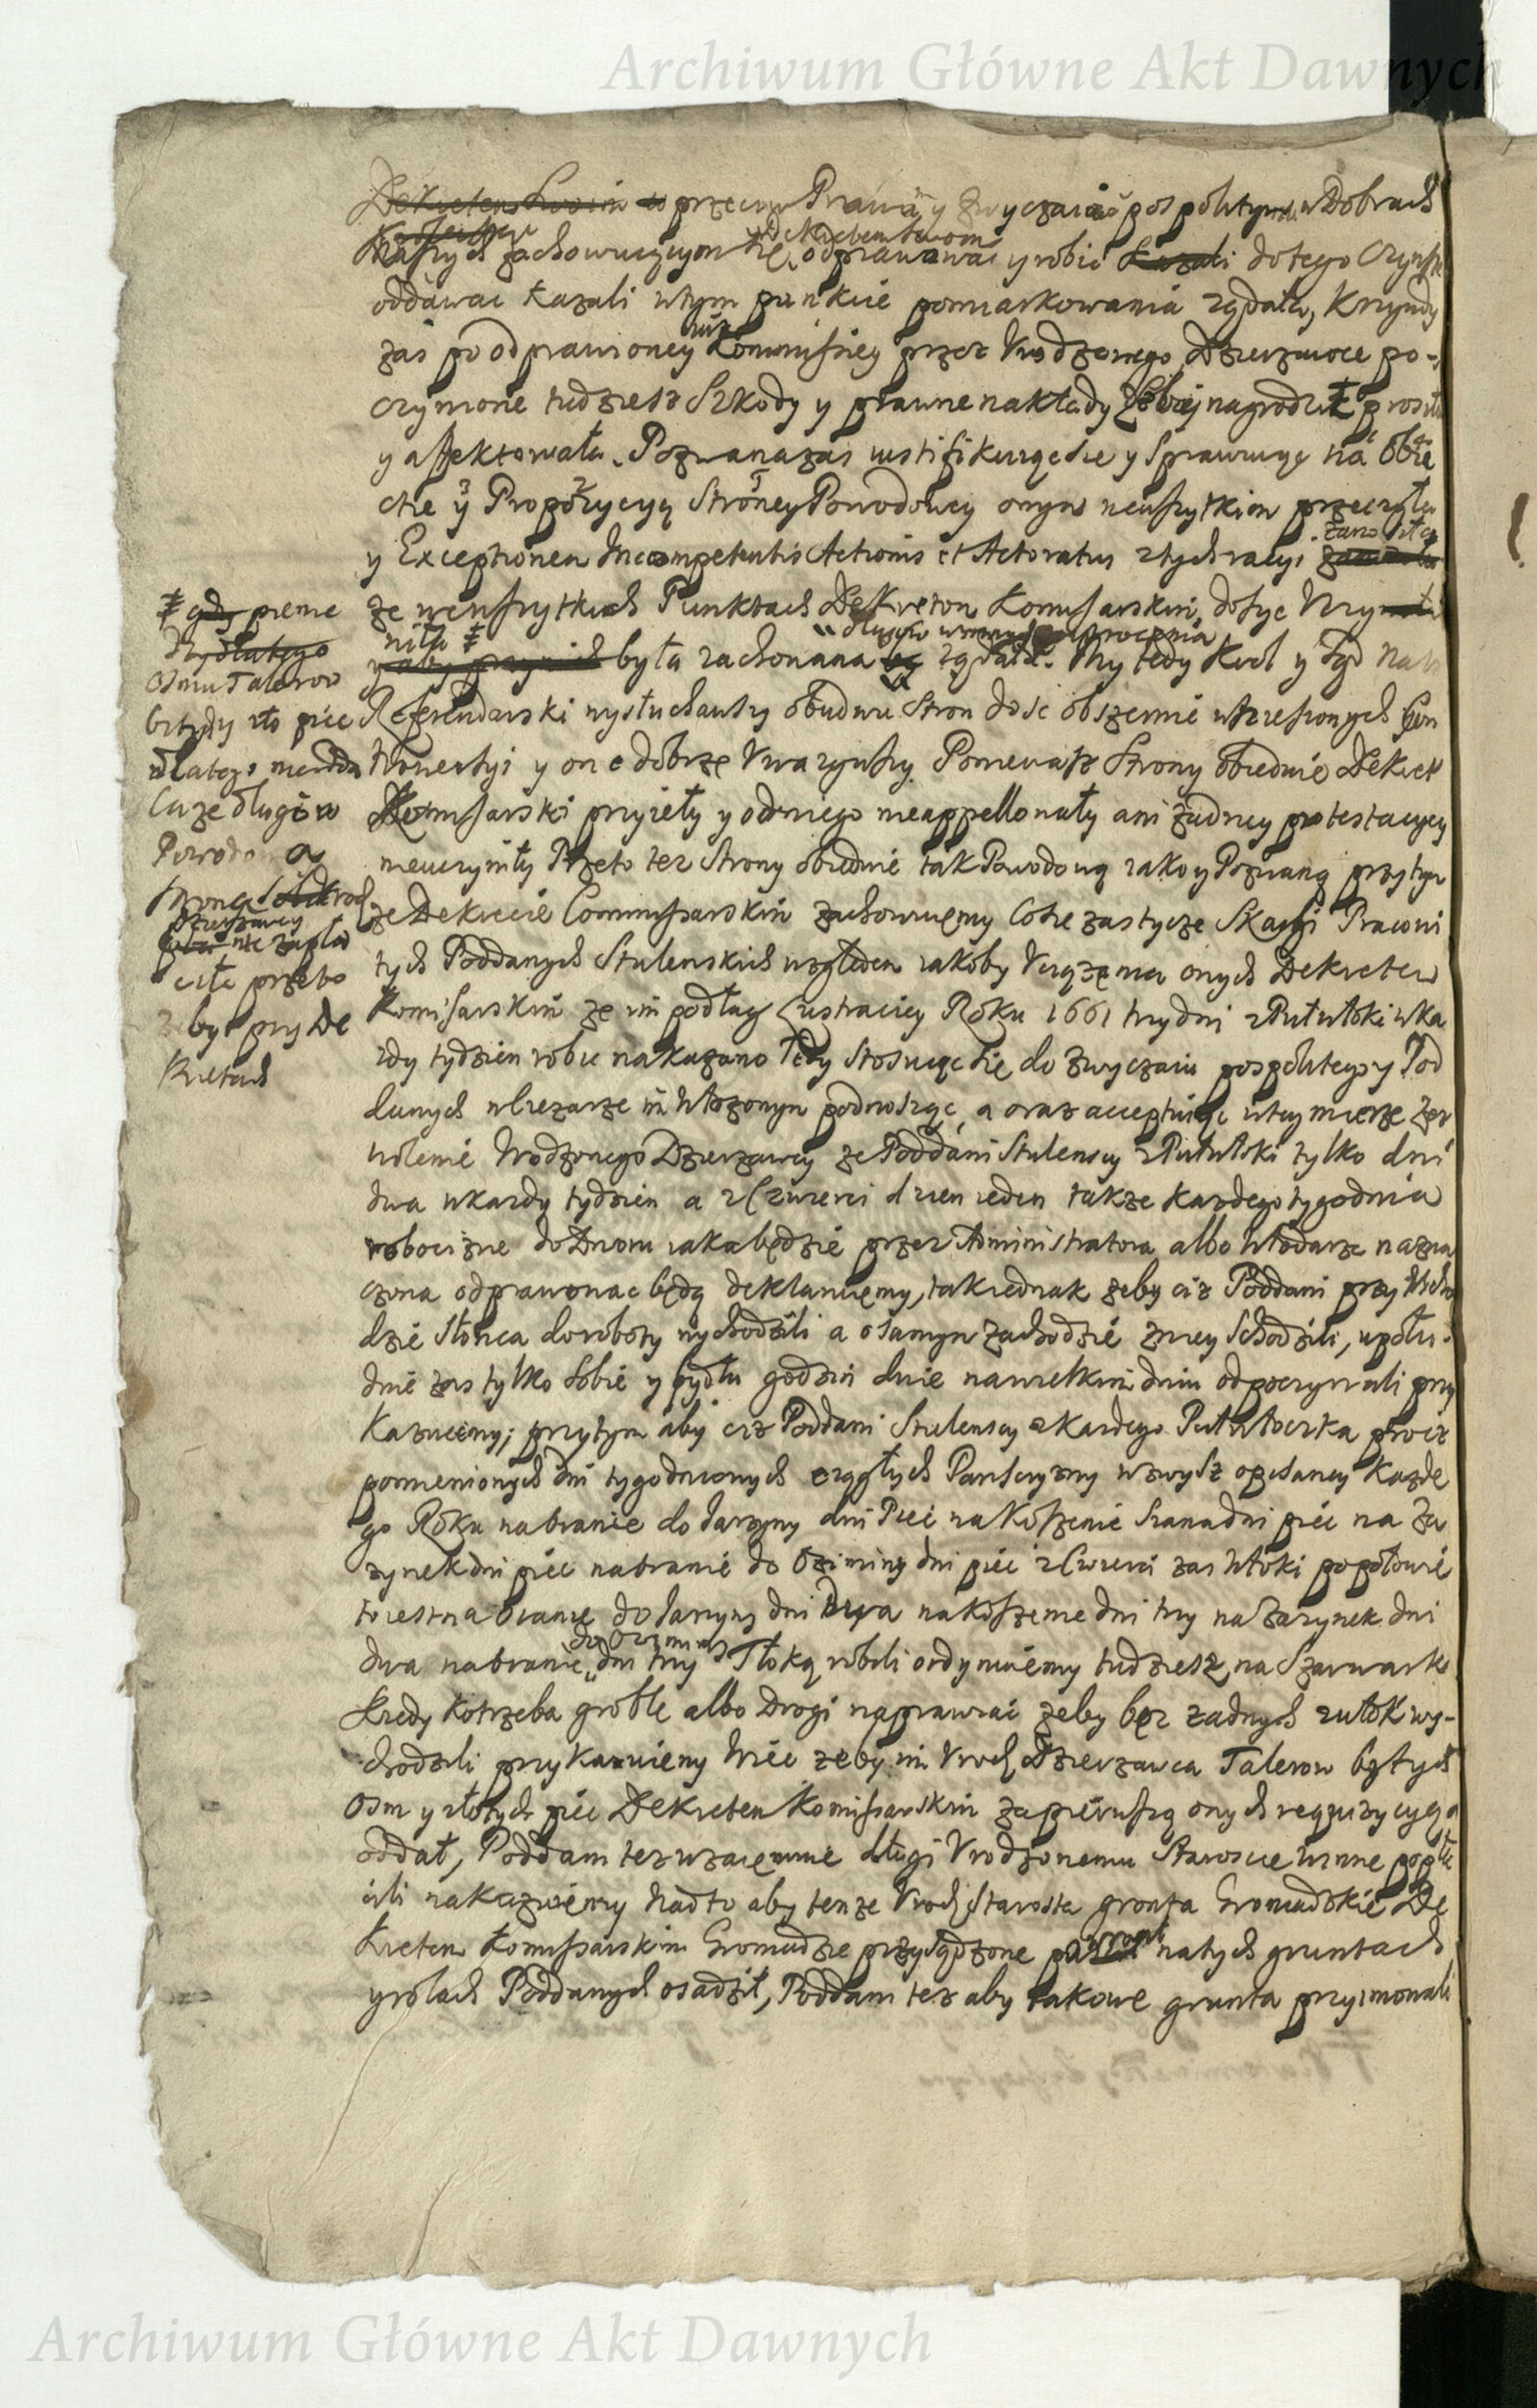 Archiwum Główne Akt Dawnych
przeciw Prawu y zwyczaiowi pospolitymu w Dobrach
Dekretem swoim
Naszych zachowuiącym się odprawować y robić Kazali do tego Czynsze
oddawac kazali wtym punkcie pomiarkowania ządała, Krzywdy
zas po odprawioney Kommissiey przez Vrodzonego Dzierzawce po-
czynione tudziesz Szkody y prawne nakłady Sobie nagrodzić prosiła
y affektowała. Pozwana zas iustifikuiąc sie y Sprawuiąc na obie
kcie y Propozycyą Strony Powodowey onym wewszytkim przeczyła
y Exceptionem Incompetentis Actionis et Actoratus ztych racyi zanosiła
ze wewszytkich Punktach Dekretowi Komissarskim dosyc Vczy
niła ǂ
była zachowana ządała. My tedy Krol y Sąd Nasz
Referendarski wysłuchawszy obudwu Stron dosc obszernie wzniesionych Con
trowersyi y one dobrze Vwazywszy Poniewasz Strony obiedwie Dekret
Komissarski przyieły y od niego nieappellowały ani zadney protestacyey
nieuczyniły Przeto tez Strony obiedwie tak Powodową iako y Pozwaną przy tym
ze Dekrecie Commissarskim zachowuiemy Co sie zas tycze Skargi Pracowi
tych Poddanych Stulenskich względem iakoby Vciązenia onych Dekretem
Komissarskim ze im podług Lustraciey Roku 1661 trzy dni z Pułwłoki wka
zdy tydzien robic nakazano Tedy stosuiąc sie do zwyczaiu pospolitego y Pod
danych wciezarze im włozonym podnosząc, a oraz acceptuiąc wtey mierze zez
wolenie Vrodzonego Dzierzawcy ze Poddani Stulenscy z Pułwłoki tylko dni
dwa wkazdy tydzien a z Czwierci dzien ieden takze kazdego tygodnia
robocizne do Dworu iaka będzie przez Administratora albo Włodarza nazna
czona odprawowac będą deklaruiemy, tak iednak zeby ciz Poddani przy Wscho
dzie Słonca do roboty wychodzili a o samym zachodzie zniey Schodzili, wpołu-
dnie zas tylko Sobie y bydłu godzin dwie nawielkim dniu odpoczywali przy
kazuiemy; przytym aby ciz Poddani Stulenscy z kazdego Pułwłoczka procz
pomienionych dni tygodniowych ciągłych Panszczyzny wzwysz opisaney kazde
go Roku na oranie do Jarzyny dni Piec na Koszenie Siana dni piec na Za
zynek dni piec na oranie do Oziminy dni piec z Cwierci zas Włoki po połowie
to iest na Oranie do Jarzyny dni Dwa na koszenie dni trzy na Zazynek dni
dwa na oranie do Oziminy dni trzy Tłoką robili ordynuiemy tudziesz na Szarwark
kiedy potrzeba groble albo Drogi naprawiać zeby bez zadnych zwłok wy-
chodzili przykazuiemy Wiec zeby im Vrodz Dzierzawca Talerow bitych
osm y złotych piec Dekretem Komissarskim za pierwszą onych requizycyą
oddał, Poddani tez wzaiemnie długi Vrodzonemu Staroscie winne popła
cili nakazuiemy Nadto aby tenze Vrodz Starosta gronta Gromadzkie De
kretem Komissarskim Gromadzie przysądzone na tych gruntach
y rolach Poddanych osadził, Poddani tez aby takowe grunta przyimowali
ǂ gdy pienie
dzy
Osmu Talerow
bitych zło piec
dlatego nieodda
ł ze długow
Powodowa
strona
Dzierzawcy nie zapła
ciła przeto
zeby przy De
kretach
Archiwum Główne Akt Dawnych